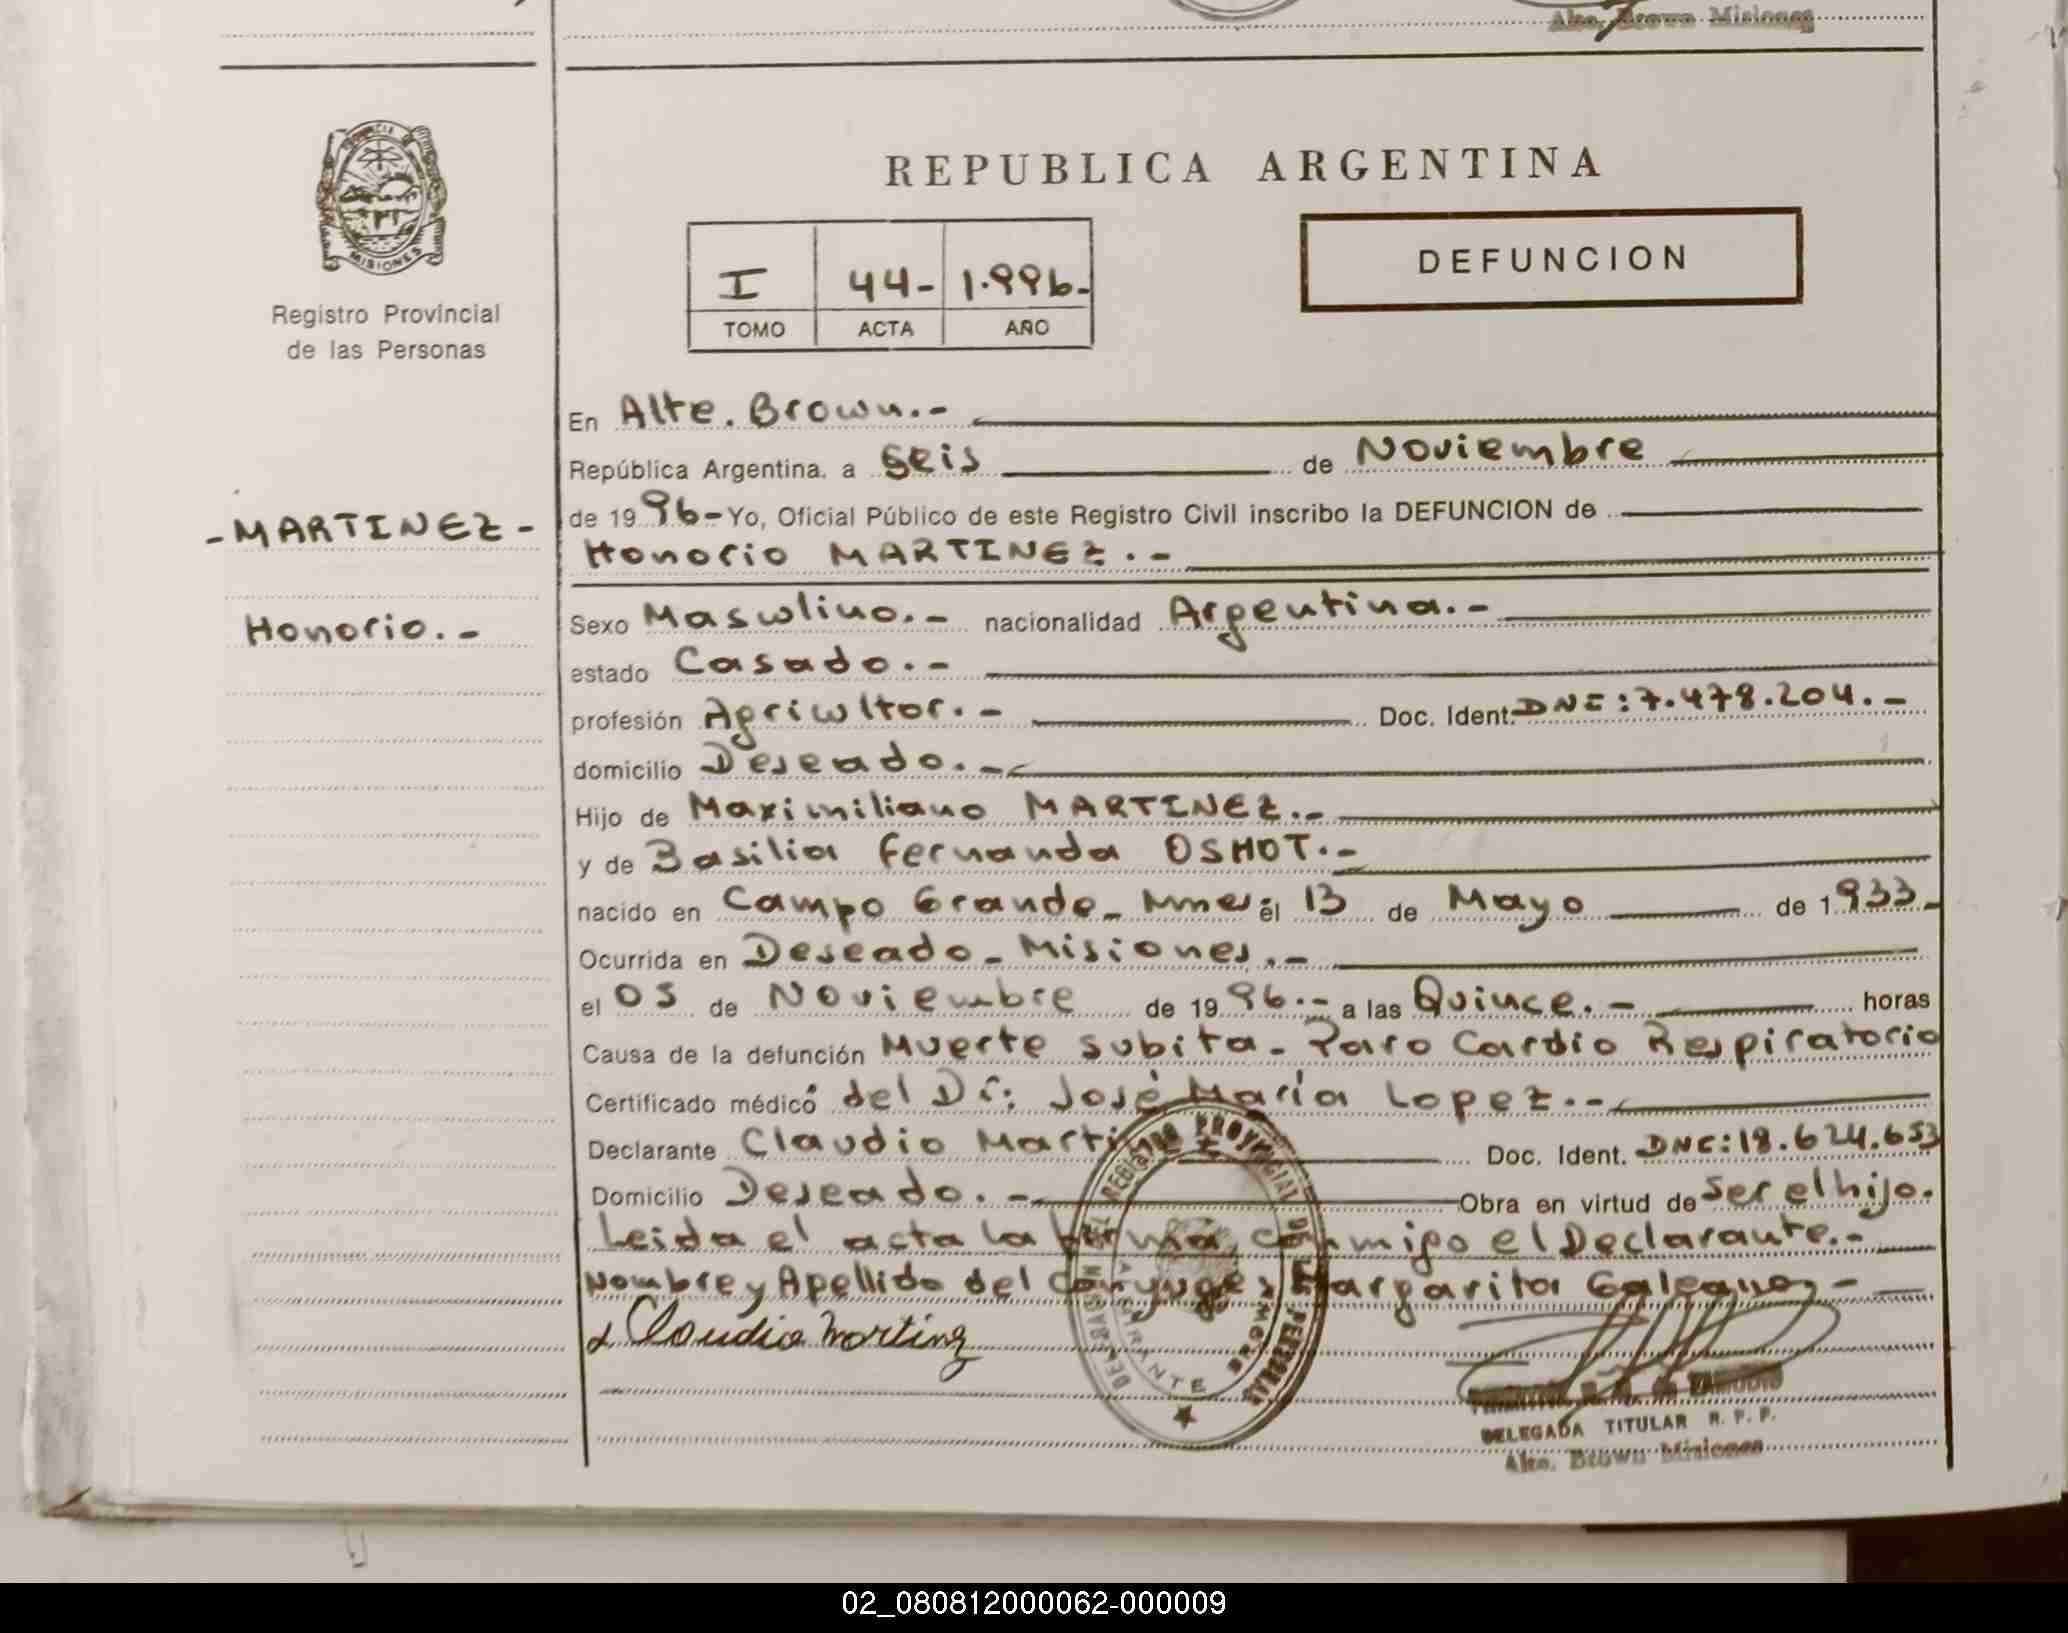 Alte. Brown Misiones
PROVINCIA DE
MISIONES
Registro Provincial
de las Personas
REPUBLICA ARGENTINA
DEFUNCION
I 44- 1.996.-
TOMO ACTA AÑO
En Alte. Brown.-
República Argentina. a seis de Noviembre
de 1996- Yo, Oficial Público de este Registro Civil inscribo la DEFUNCION de
Honorio MARTINEZ.-
-MARTINEZ-
Honorio.-
Sexo Masculino.- nacionalidad Argentina.-
estado Casado.-
profesión Agricultor.- Doc. Ident. DNI: 7.478.204.-
domicilio Deseado.-
Hijo de Maximiliano MARTINEZ.-
y de Basilia Fernanda OSMOT.-
nacido en Campo Grande- Mnes el 13 de Mayo de 1933-
Ocurrida en Deseado- Misiones.-
el 05 de Noviembre de 1996.- a las Quince.- horas
Causa de la defunción Muerte subita- Paro Cardio Respiratorio
Certificado médico del Dr: José María Lopez.-
Declarante Claudio Martinez Doc. Ident. DNI: 18.624.653
Domicilio Deseado.- Obra en virtud de ser el hijo.
Leida el acta la firma conmigo el Declarante.-
Nombre y Apellido del Conyuge: Margarita Galeano,-
Claudio Martinez
REGISTRO PROVINCIAL DE LAS PERSONAS
ALMIRANTE BROWN
DELEGADA TITULAR R. P. P.
Alte. Brown Misiones
02_080812000062-000009